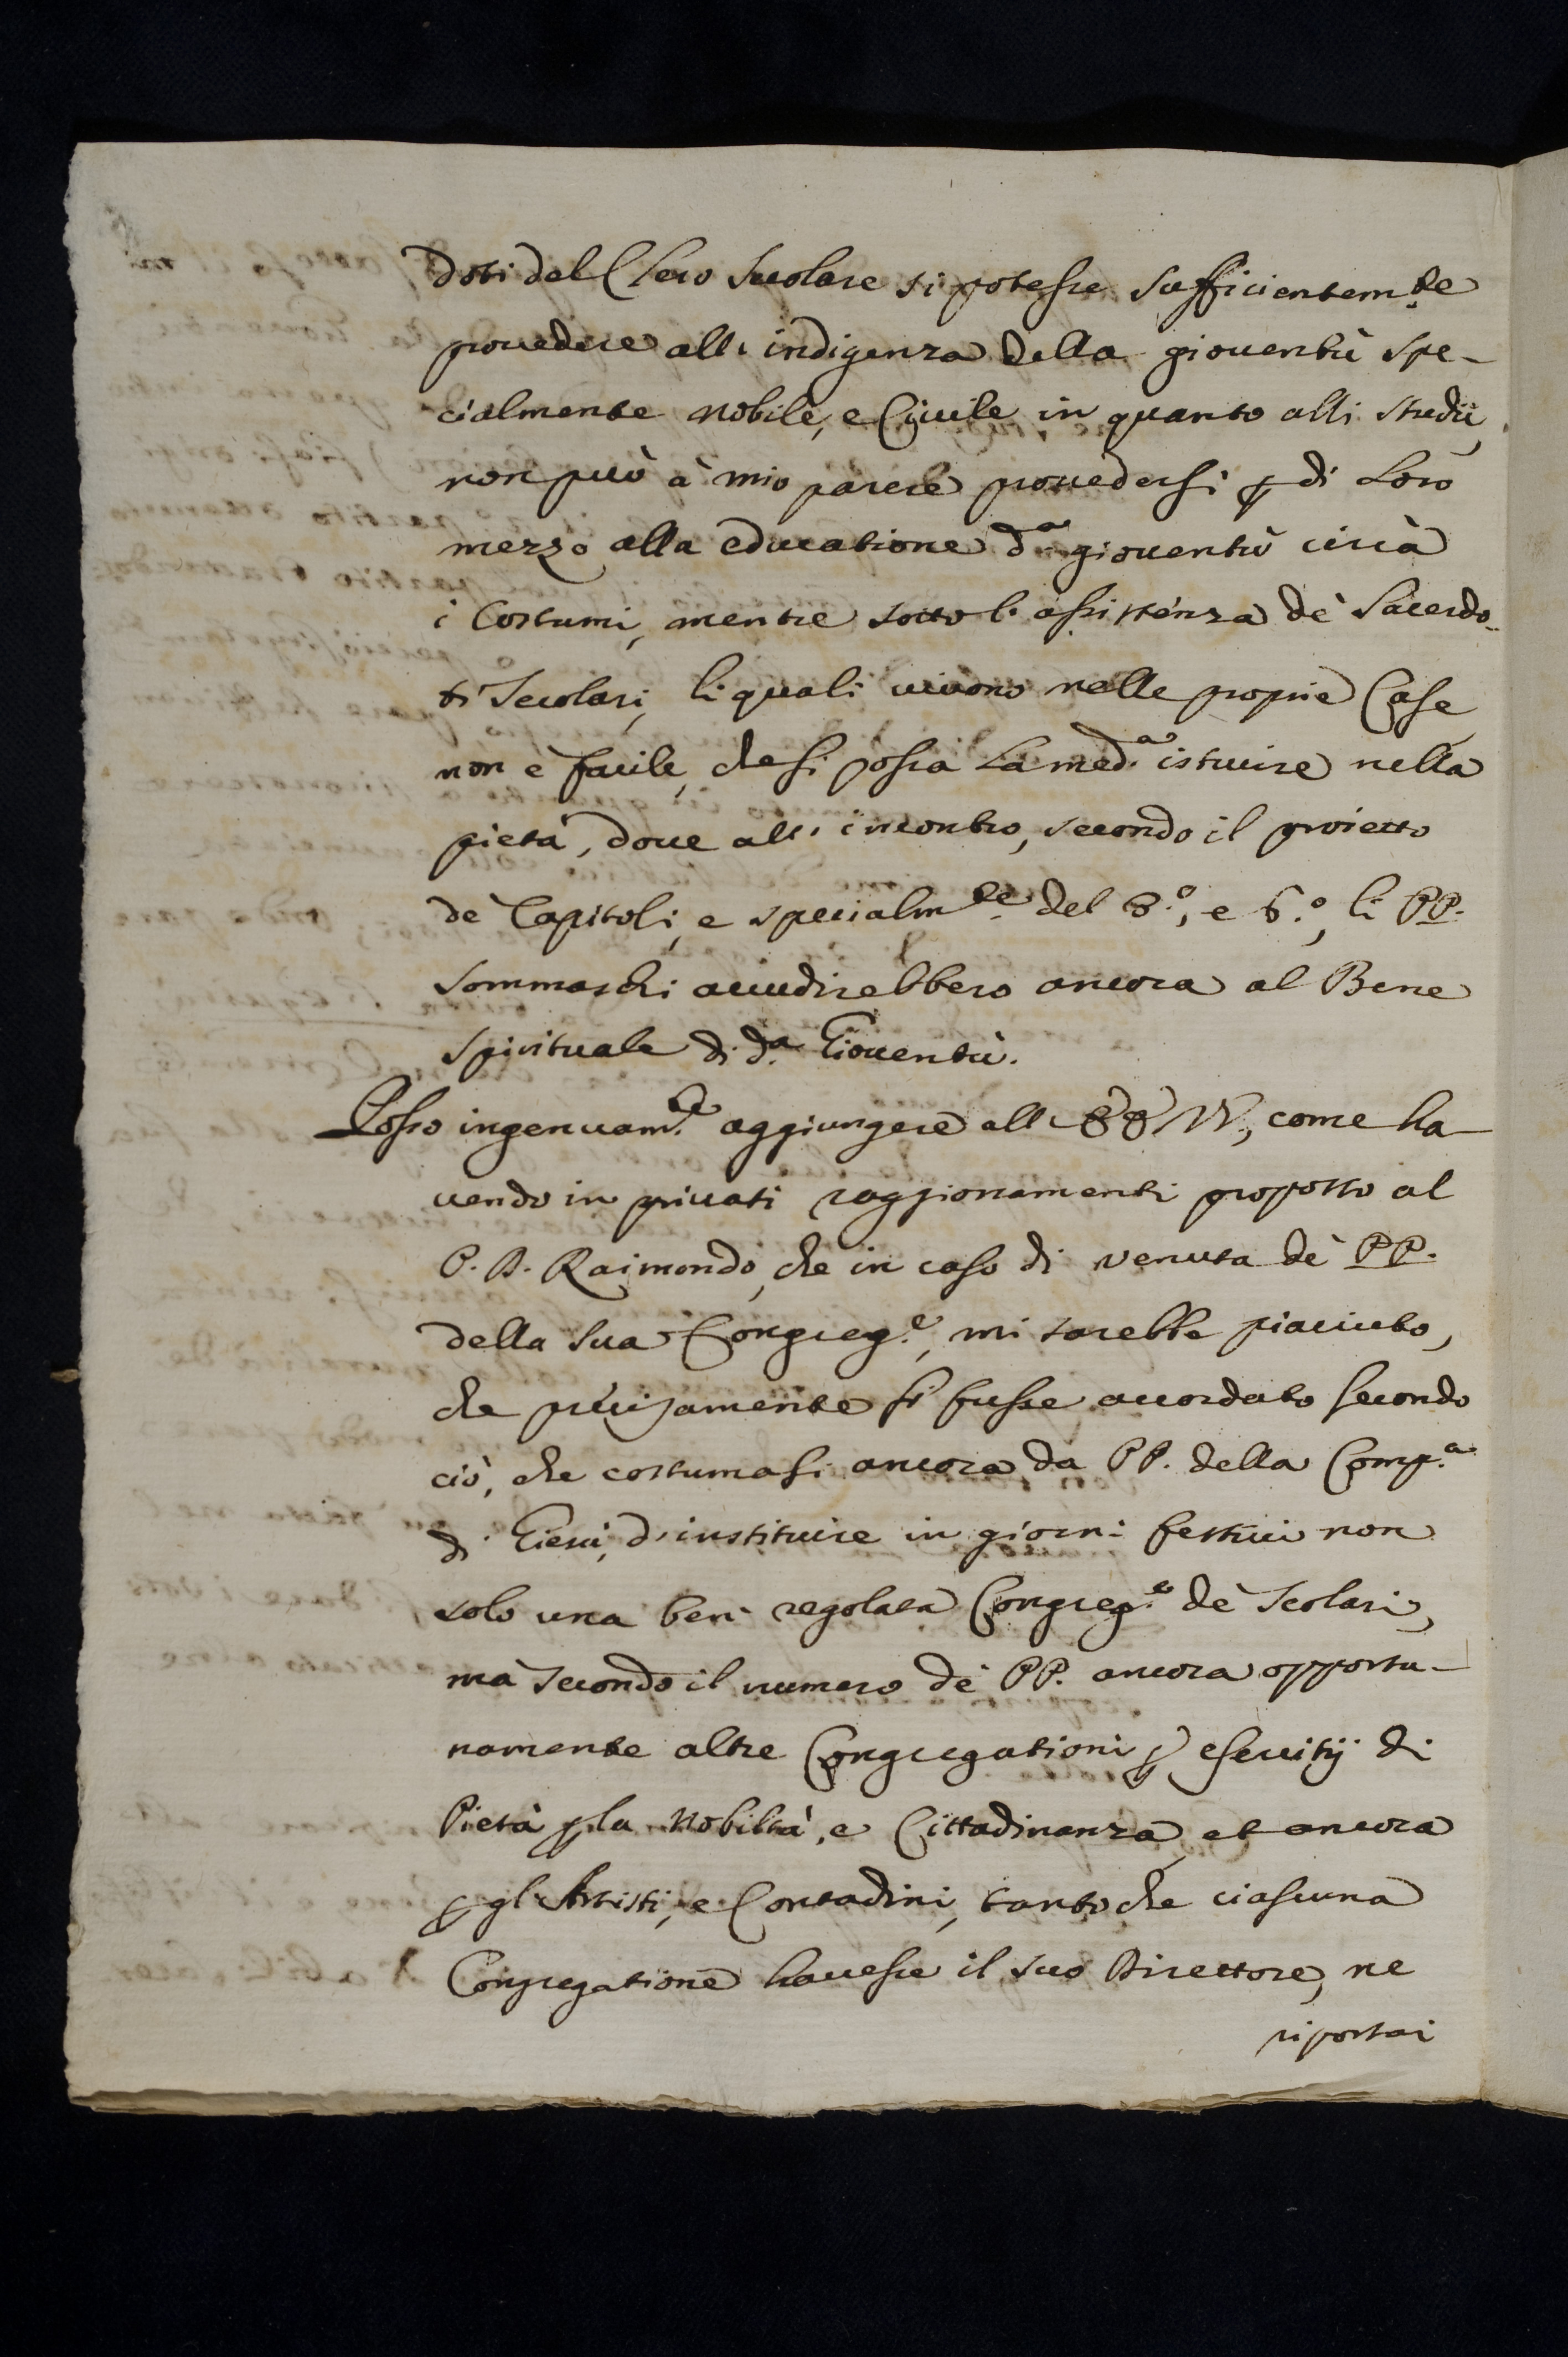 doti del Clero Secolare si potesse sufficientem.te
prouedere all' indigenza della giouentù spe-
cialmente nobile, e Ciuile in quanto alli studii,
non può à mio parere prouedersi p di Loro
mezzo alla educatione d.a giouentù circà
i Costumi, mentre sotto l'assistenza dè Sacerdo-
ti Secolari, li quali uiuono nelle proprie Case,
non è facile, che si possa La med.a istruire nella
pietà, doue all' incontro, secondo il proietto
dè Capitoli, e specialm.te del 3.º, e 6.º, li PP.
Sommaschi accudirebbero ancora al Bene
spirituale di d.a Giouentù.
Posso ingenuam.te aggiungere alle VV, come ha-
uendo in priuati raggionamenti proposto al
P. D. Raimondo, che in caso di venuta dè PP.
della Sua Congreg.e, mi sarebbe piaciuto,
che precisamente si fusse accordato secondo
ciò, che costumasi ancora da PP. della Comp.a
di Giesù, d'instituire in giorni festiui non
solo una ben regolata Congreg.e dè Scolari,
mà secondo il numero dè PP. ancora opportu-
namente altre Congregationi p esercitij di
Pietà p la Nobiltà, e Cittadinanza, et ancora
p gl'Artisti, e Contadini, tanto che ciascuna
Congregatione hauesse il suo Direttore, ne
riportai